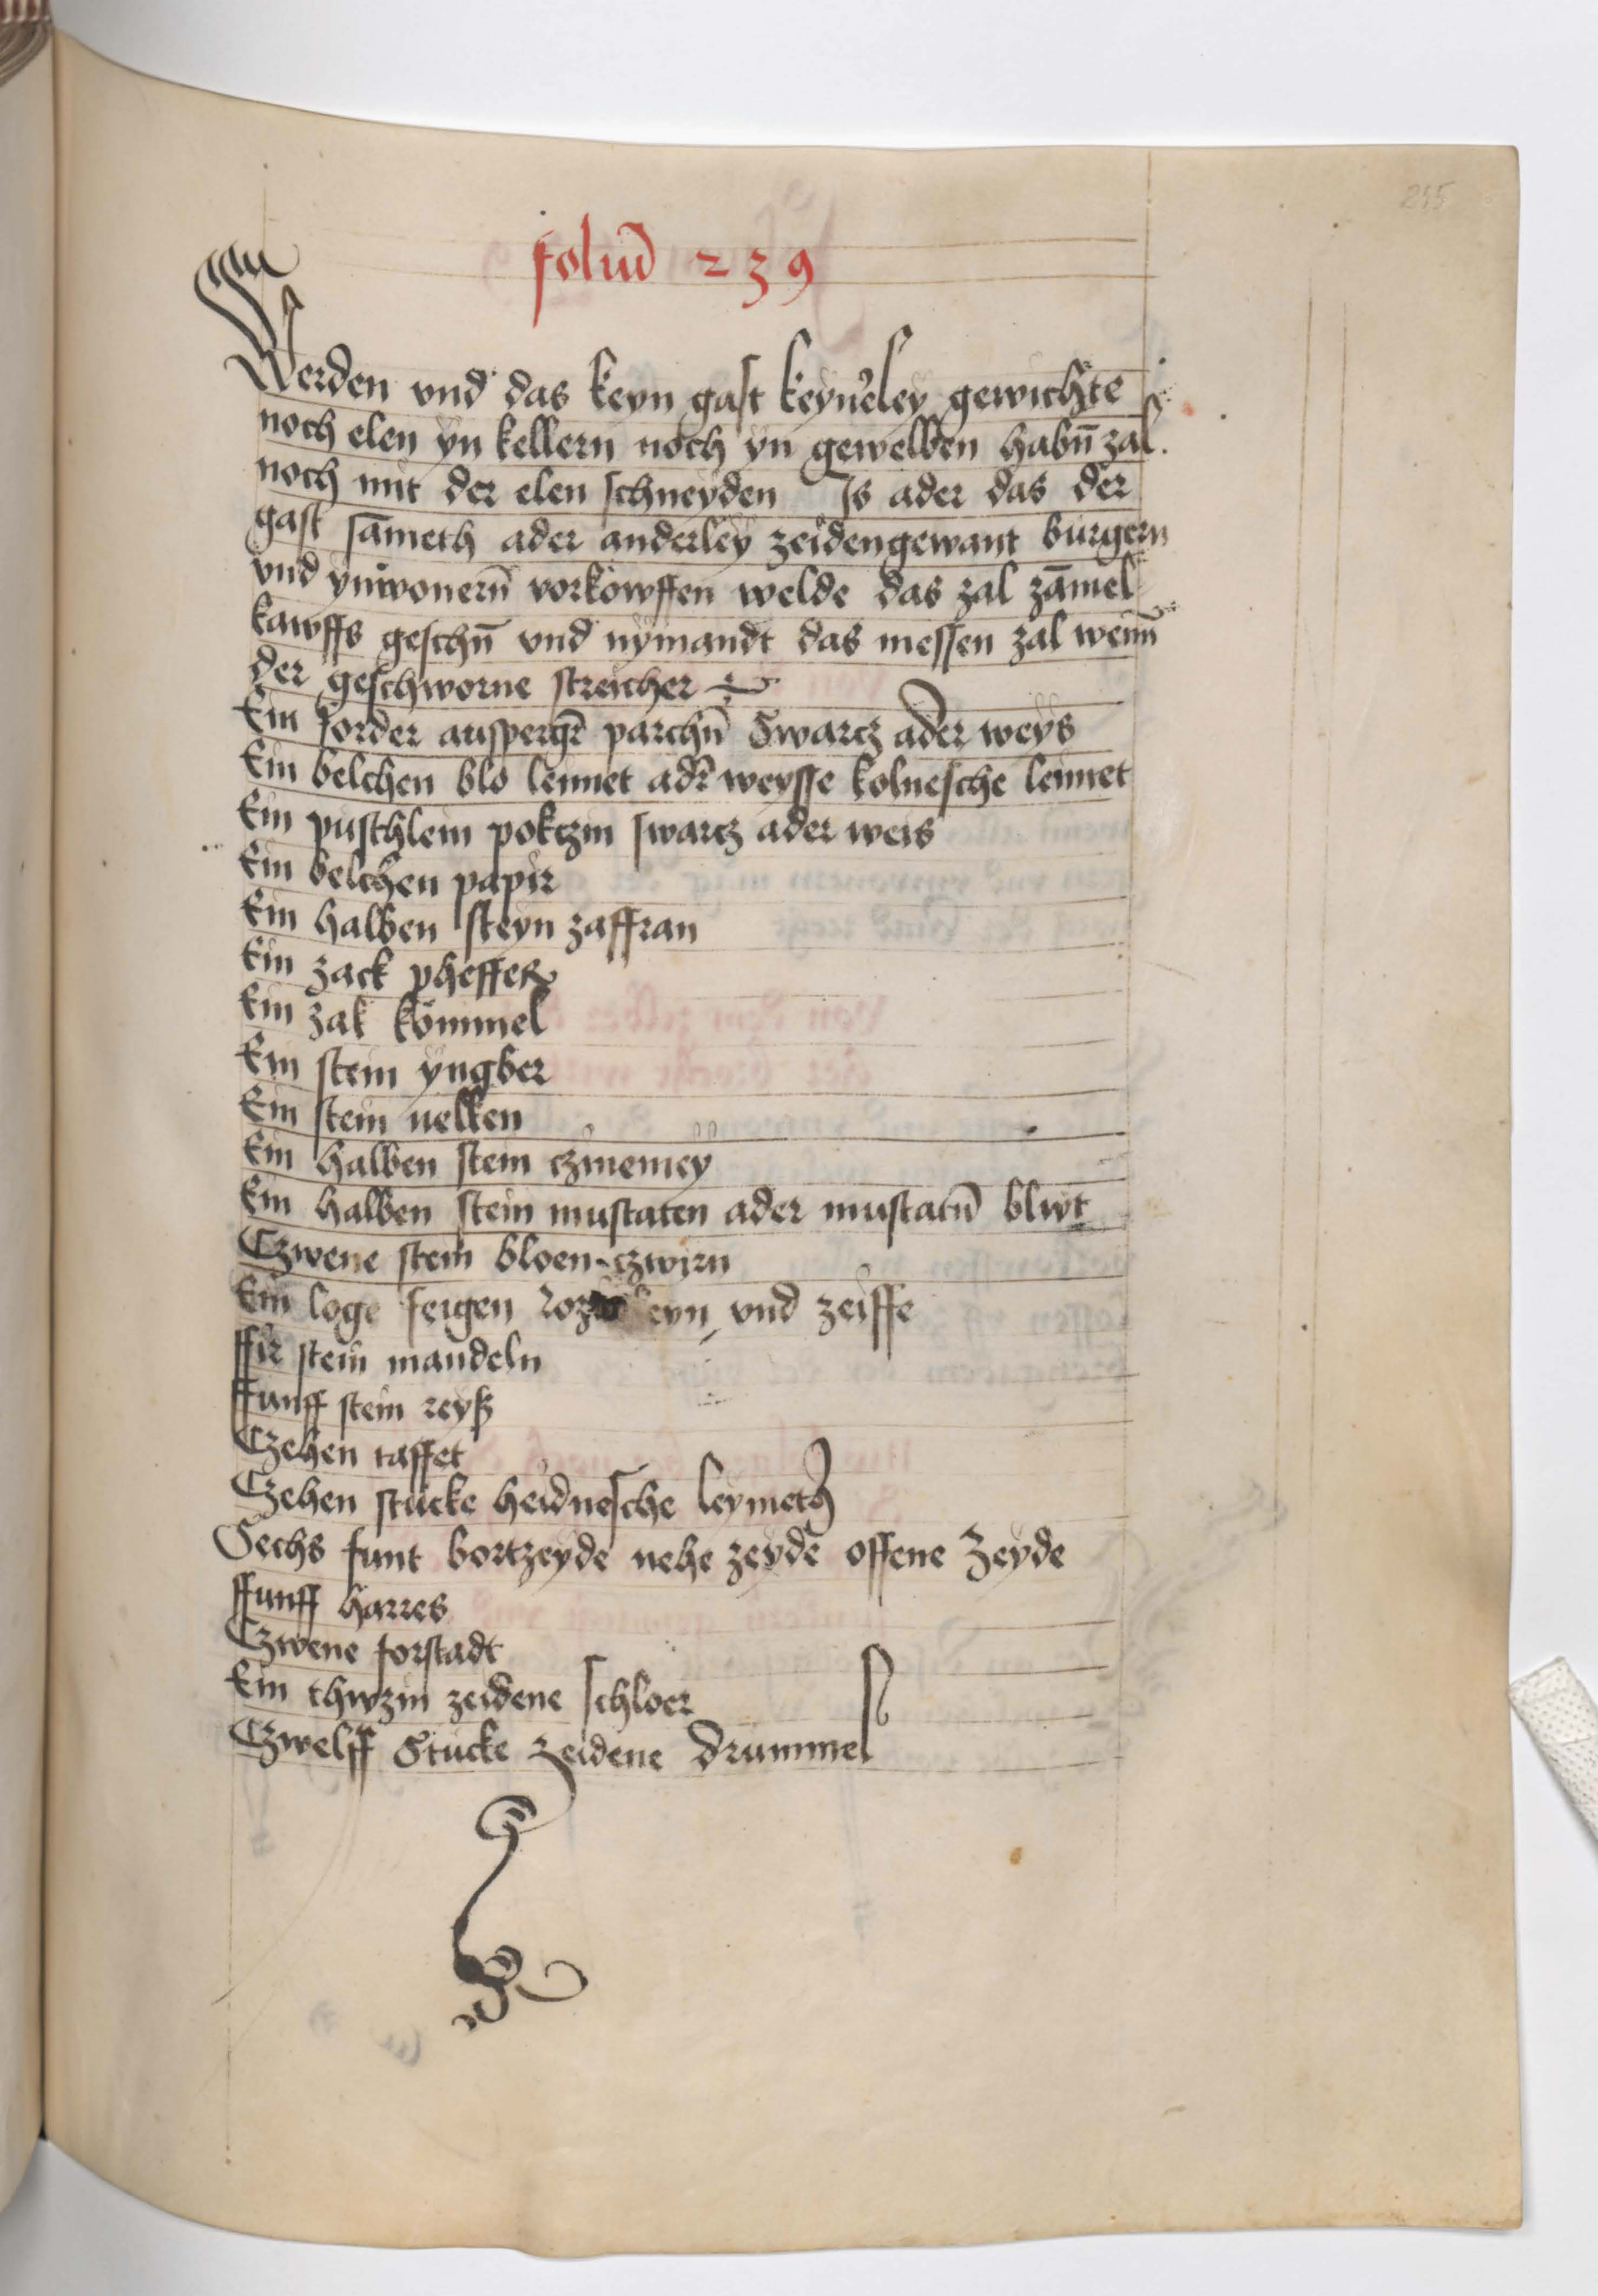 245
foliu͂ 239
Werden vnd das keyn gast keyn'eley gewichte
noch elen yn kellern noch yn gewelben habn̄ zal.
noch mit der elen schneyden Js ader das der
gast sāmeth ader anderley zeidengewant burgern
vnd ynwonern̄ vorkowffen welde das zal zāmel
kawffs geschn̄ vnd nymandt das messen zal wenn̄
der geschworne streicher
Ein forder auspergr̄ parchn̄ Swarcz ader weys
Ein belchen blo leinnet adr̄ weysse kolnesche leinnet
Ein puschlein pokczin swarcz ader weis
Ein belchen papir
Ein halben steyn zaffran
Ein zack pheffer
Ein zak kömmel
Ein stein yngber
Ein stein nelken
Ein halben stein czinemey
Ein halben stein muscaten ader muscatn̄ blwt
Czwene stein bloen czwirn
Ein loge feigen eyn vnd zeiffe
ffir stein mandeln
ffunff stein reyß
Czehen taffet
Czehen stucke heidnesche leymeth
Sechs funt bortzeyde nehe zeyde offene Zeyde
ffunff harres
Czwene forstadt
Ein thwzin zeidene schloer
Czwelff Stucke zeidene drummel